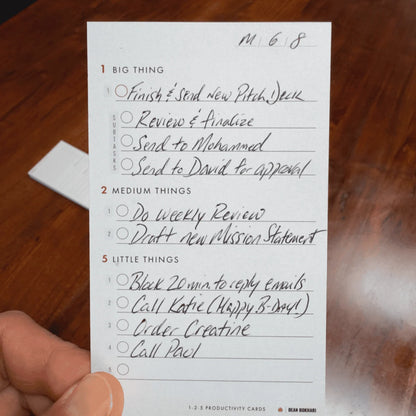 M 6 8
1 BIG THING
1 Finish & Send New Pitch Deck
SUBTASKS
Review & finalize
Send to Mohammed
Send to David for approval
2 MEDIUM THINGS
1 Do Weekly Review
2 Draft new Mission Statement
5 LITTLE THINGS
1 Block 20 min to reply emails
2 Call Katie (Happy B-Day!)
3 Order Creatine
4 Call Paul
5
1-2-5 PRODUCTIVITY CARDS | DEAN BOKHARI